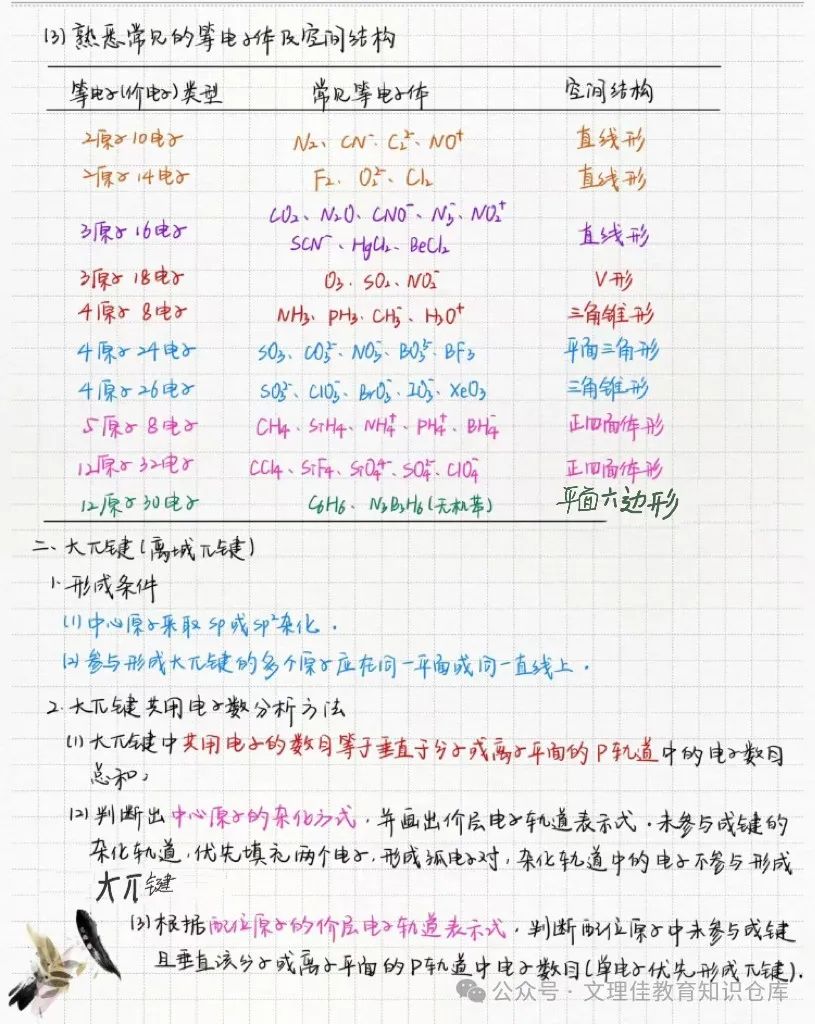 (3) 熟悉常见的等电子体及空间结构
等电子(价电子)类型 常见等电子体 空间结构
2原子10电子 N₂、CN⁻、C₂²⁻、NO⁺ 直线形
2原子14电子 F₂、O₂²⁻、Cl₂ 直线形
3原子16电子 CO₂、N₂O、CNO⁻、N₃⁻、NO₂⁺ 直线形
SCN⁻、HgCl₂、BeCl₂
3原子18电子 O₃、SO₂、NO₂⁻ V形
4原子8电子 NH₃、PH₃、CH₃⁻、H₃O⁺ 三角锥形
4原子24电子 SO₃、CO₃²⁻、NO₃⁻、BO₃³⁻、BF₃ 平面三角形
4原子26电子 SO₃²⁻、ClO₃⁻、BrO₃⁻、IO₃⁻、XeO₃ 三角锥形
5原子8电子 CH₄、SiH₄、NH₄⁺、PH₄⁺、BH₄⁻ 正四面体形
12原子32电子 CCl₄、SiF₄、SiO₄⁴⁻、SO₄²⁻、ClO₄⁻ 正四面体形
12原子30电子 C₆H₆、N₃B₃H₆(无机苯) 平面六边形
二、大π键(离域π键)
1.形成条件
(1)中心原子采取sp或sp²杂化.
(2)参与形成大π键的多个原子应在同一平面或同一直线上.
2.大π键共用电子数分析方法
(1)大π键中共用电子的数目等于垂直于分子或离子平面的P轨道中的电子数目
总和;
(2)判断出中心原子的杂化方式,并画出价层电子轨道表示式.未参与成键的
杂化轨道,优先填充两个电子,形成孤电子对,杂化轨道中的电子不参与形成
大π键
(3)根据配位原子的价层电子轨道表示式,判断配位原子中未参与成键
且垂直该分子或离子平面的P轨道中电子数目(单电子优先形成π键).
公众号·文理佳教育知识仓库